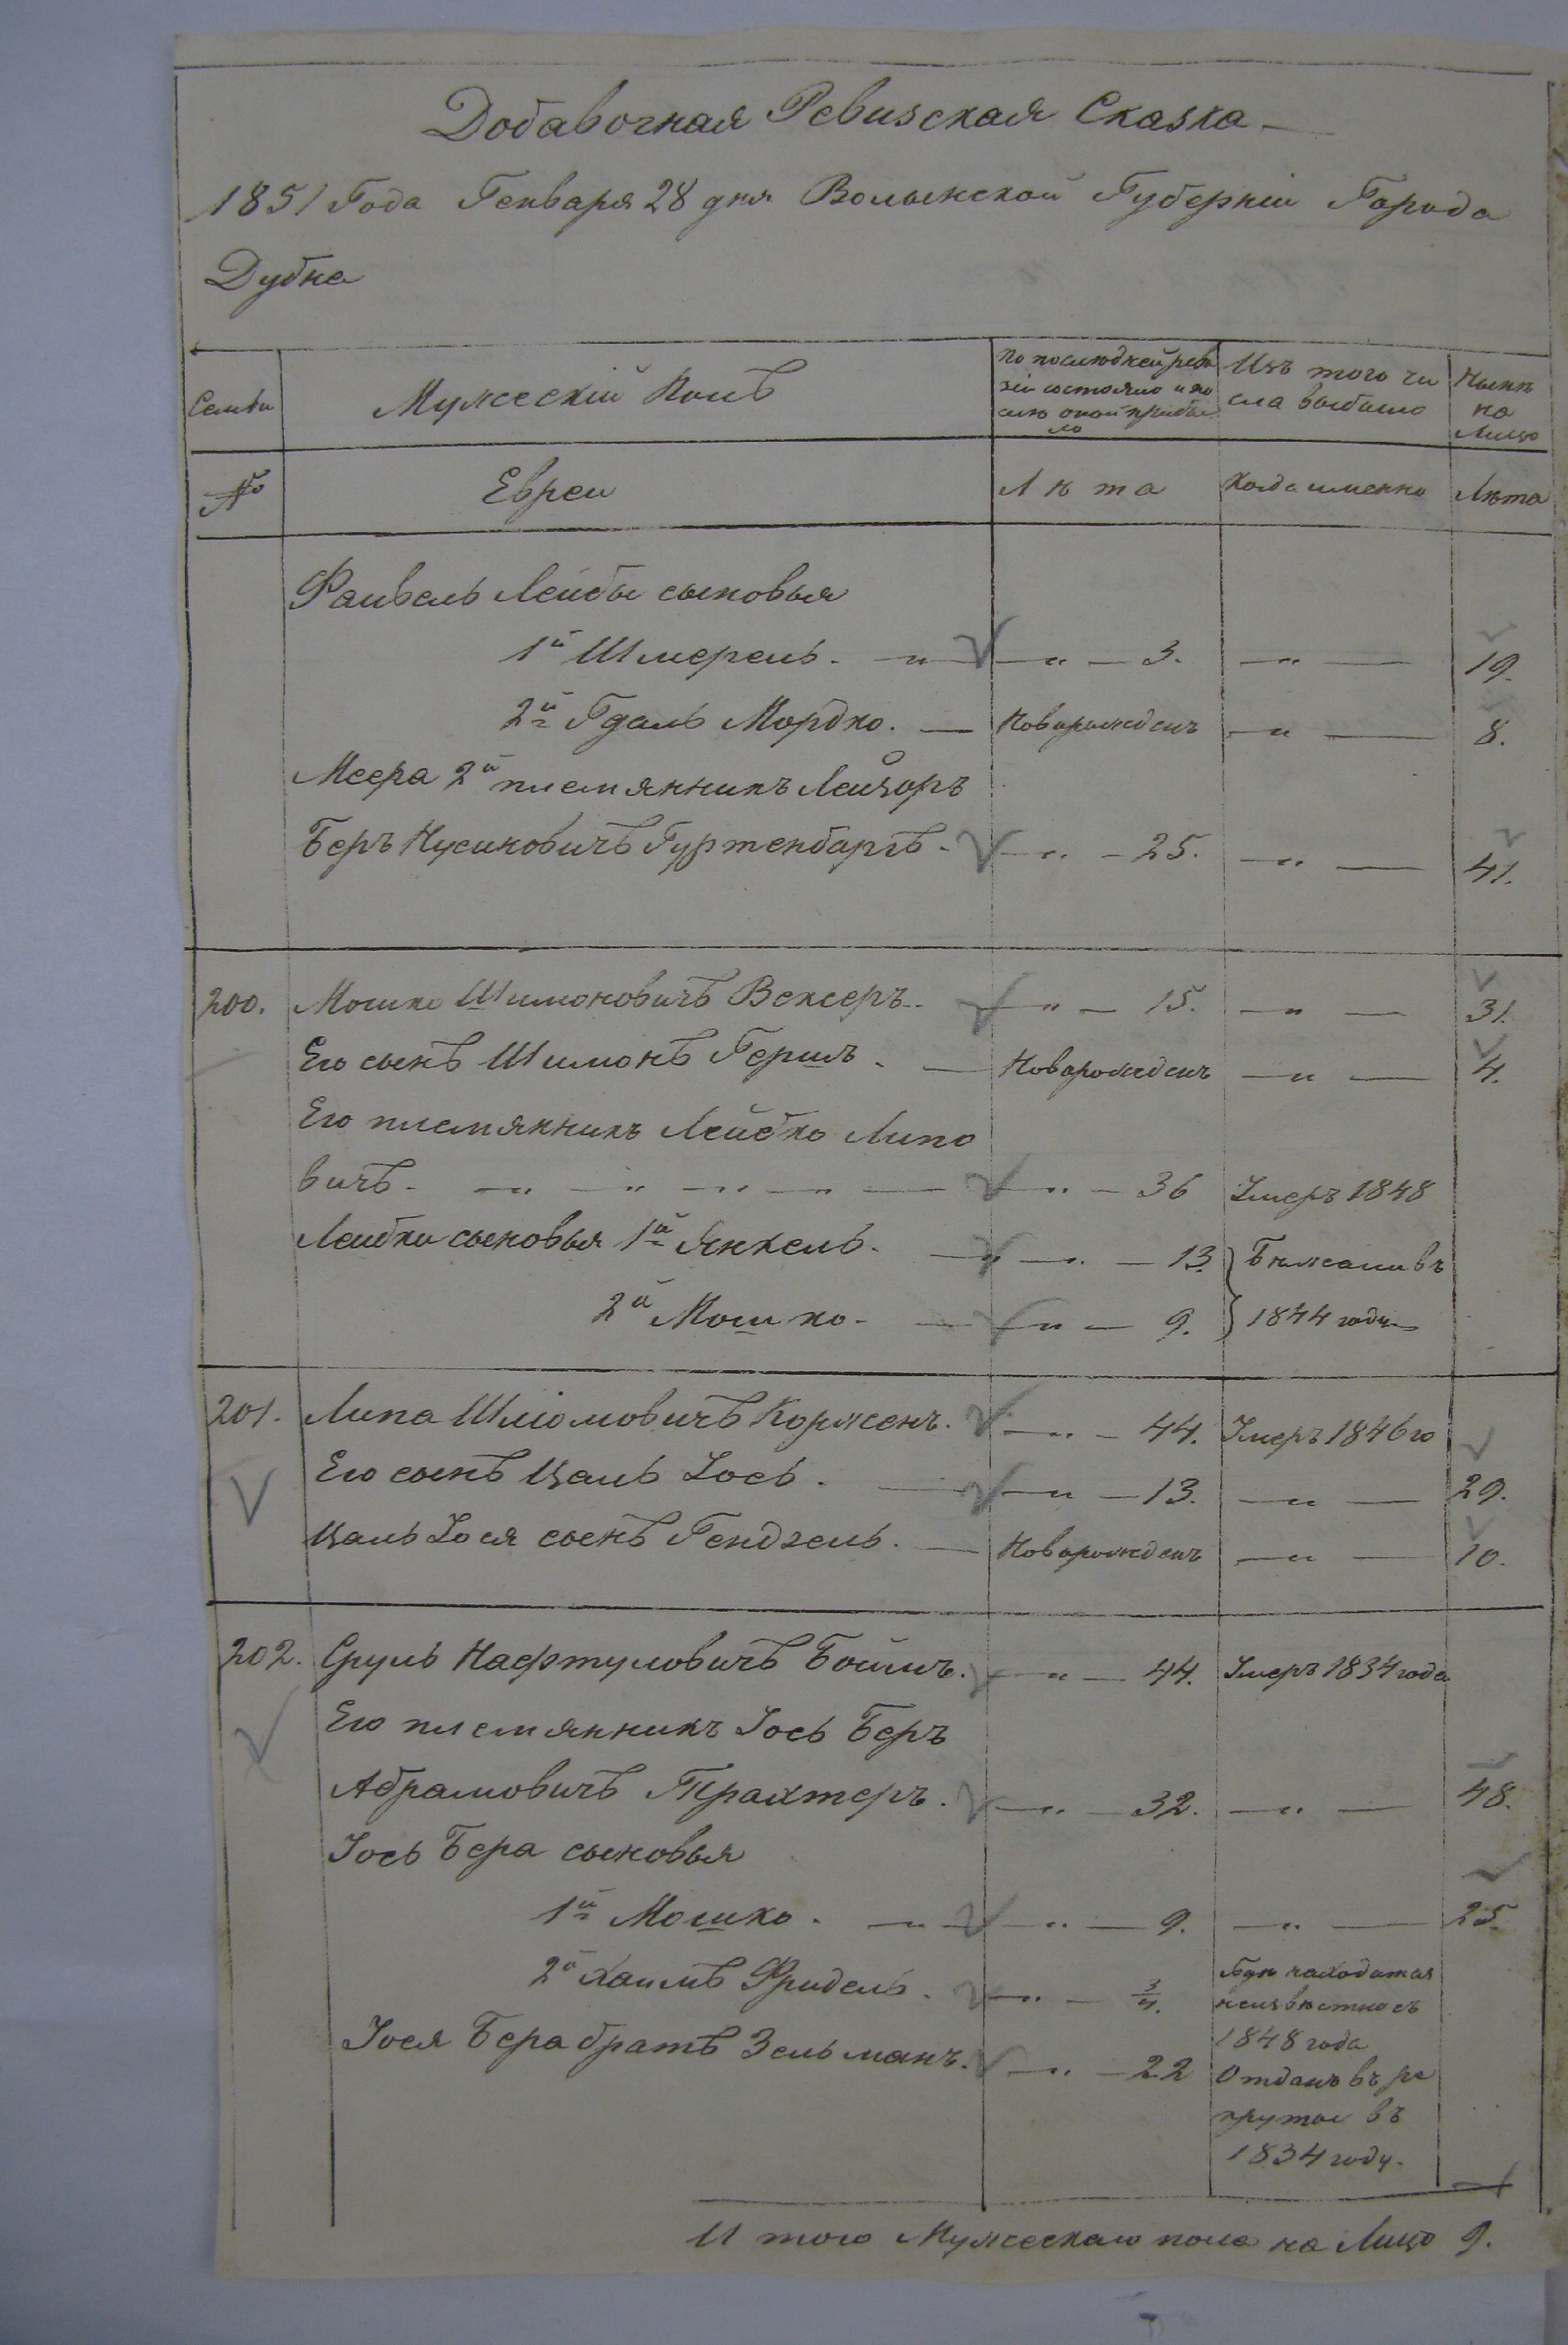 Добавочная Ревизская Сказка
1851 Года Генваря 28 дня Волынской Губерніи Города
Дубна
Семьи
Мужескій Полъ
по последней реви
зіи состояло и по
слѣ оной прибы
ло
Изъ того чи
сла выбыло
Нынѣ
на
Лицо
№
Евреи
Лѣта
Когда именно
Лѣта
Файвель Лейбы сыновья
1й Шмерель. — „ — „ — 3. — „ — 19.
2й Гдаль Мордко. — Новорожденъ — „ — 8.
Меера 2й племянникъ Лейзоръ
Беръ Нусиновичъ Гуртенбаргъ. — „ — 25. — „ — 41.
200. Мошко Шимоновичъ Векслеръ. — „ — 15. — „ — 31.
Его сынъ Шимонъ Гершъ. — Новорожденъ — „ — 4.
Его племянникъ Лейбко Липо
вичъ. — „ — „ — „ — „ — „ — 36 Умеръ 1848
Лейбки сыновья 1й Янкель. — „ — 13. Бѣжали въ
2й Мошко. — „ — 9. 1844 году
201. Липа Шліомовичъ Корженъ. — „ — 44. Умеръ 1846го
Его сынъ Цаль Іось. — „ — 13. — „ — 29.
Цаль Іося сынъ Гендзель. — Новорожденъ — „ — 10.
202. Сруль Нафтуловичъ Бойшъ. — „ — 44. Умеръ 1834 года
Его племянникъ Іось Беръ
Абрамовичъ Трахтеръ. — „ — 32. — „ — 48.
Іось Бера сыновья
1й Мошко. — „ — „ — 9. — „ — 25.
2й Хаимъ Фридель. — „ — 3/4.
Гдѣ находится
неизвѣстно съ
1848 года
Іося Бера братъ Зельманъ. — „ — 22
Отданъ въ ре
круты въ
1834 году.
И того Мужескаго пола на Лицо 9.